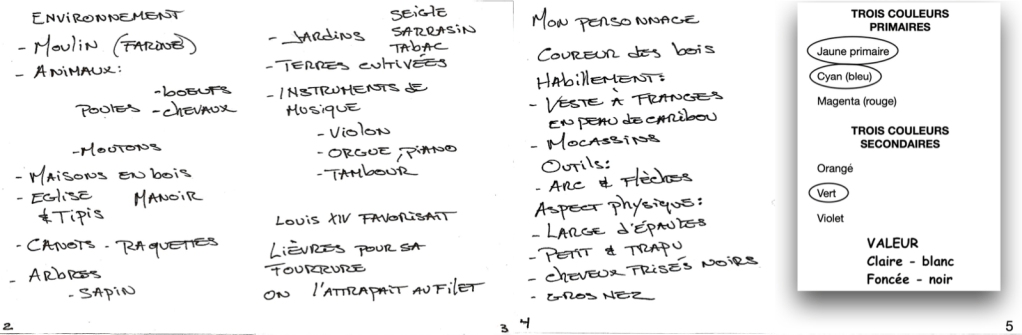 ENVIRONNEMENT
- MOULIN (FARINE)
- ANIMAUX:
- BOEUFS
POULES - CHEVAUX
- MOUTONS
- MAISONS EN bois
- EGLISE MANOIR
& TIPIS
- CANOTS - RAQUETTES
- ARBRES
- SAPIN
2
SEIGLE
- JARDINS SARRASIN
TABAC
- TERRES CULTIVÉES
- INSTRUMENTS de
MUSIQUE
- VIOLON
- ORGUE, PIANO
- TAMBOUR
LOUIS XIV FAVORISAIT
LIÈVRES POUR SA
FOURRURE
ON l'ATTRAPAIT AU FILET
3
MON PERSONNAGE
COUREUR des bois
HABILLEMENT:
- VESTE À FRANGES
EN PEAU de CARIBOU
- MOCASSINS
OUTILS:
- ARC & Flèches
ASPECT PHYSIQUE:
- LARGE d'ÉPAULES
- PETIT & TRAPU
- CHEVEUX FRISÉS NOIRS
- GROS NEZ
4
TROIS COULEURS
PRIMAIRES
Jaune primaire
Cyan (bleu)
Magenta (rouge)
TROIS COULEURS
SECONDAIRES
Orangé
Vert
Violet
VALEUR
Claire - blanc
Foncée - noir
5